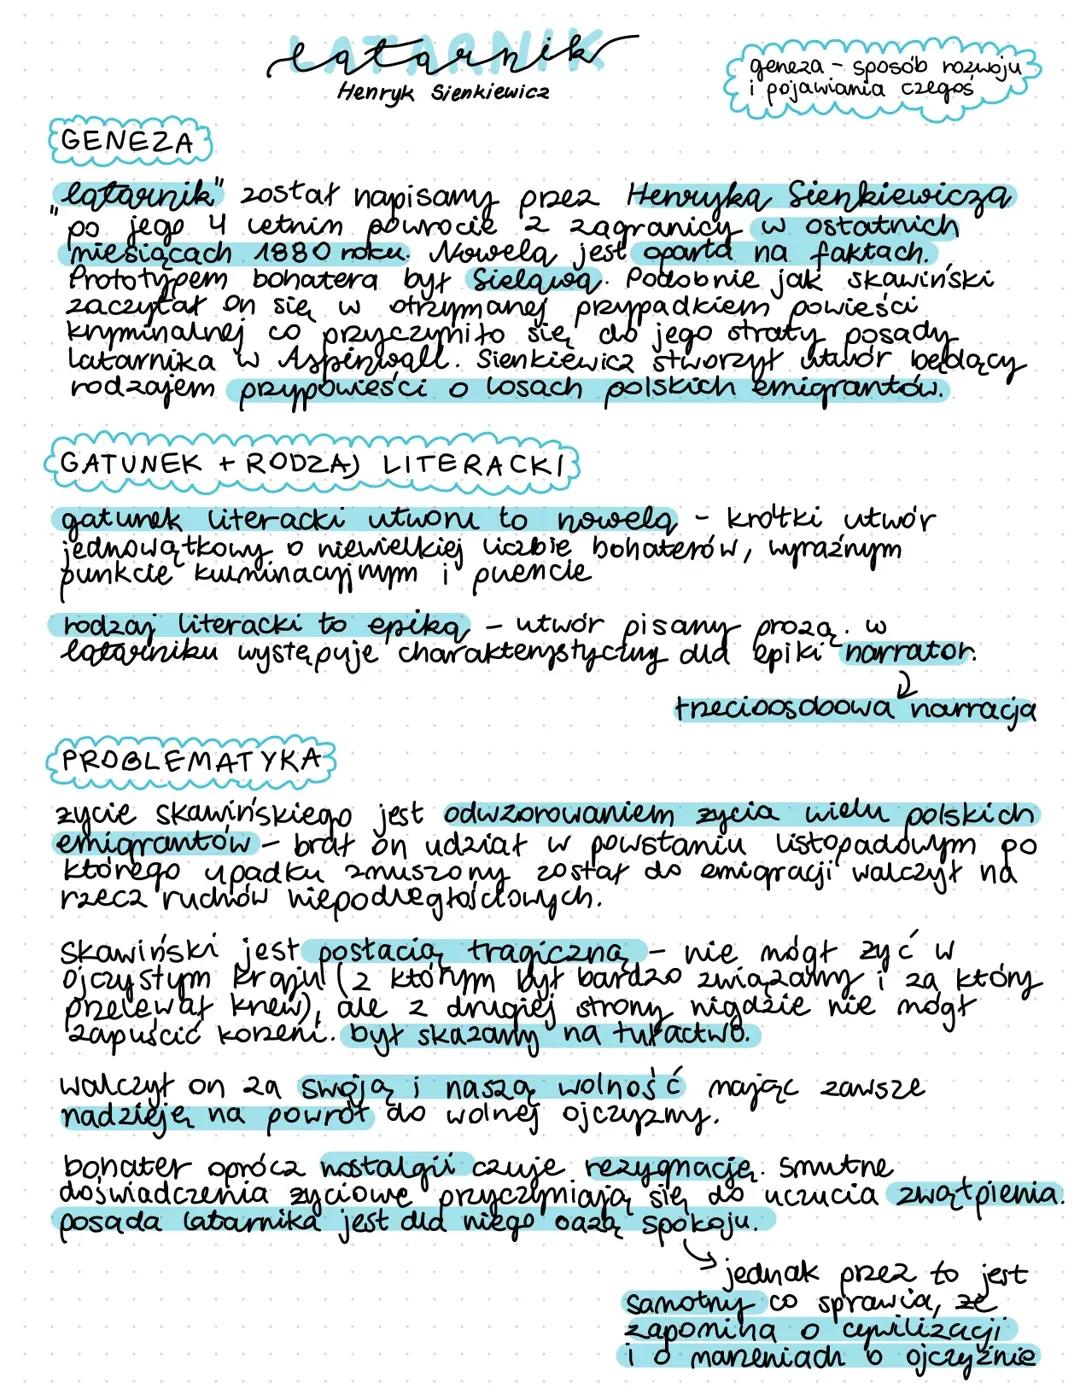 LATARNIK
latarnik
Henryk Sienkiewicz
geneza - sposób rozwoju
i pojawiania czegoś
GENEZA
"latarnik" został napisany przez Henryka Sienkiewicza
po jego 4 letnim powrocie z zagranicy w ostatnich
miesiącach 1880 roku. Nowela jest oparta na faktach.
Prototypem bohatera był Sielawa. Podobnie jak skawiński
zaczytał on się w otrzymanej przypadkiem powieści
kryminalnej co przyczyniło się do jego straty posady
latarnika w Aspinwall. Sienkiewicz stworzył utwór będący
rodzajem przypowieści o losach polskich emigrantów.
GATUNEK + RODZAJ LITERACKI
gatunek literacki utworu to nowela - krótki utwór
jednowątkowy o niewielkiej liczbie bohaterów, wyraźnym
punkcie kulminacyjnym i puencie
rodzaj literacki to epika - utwór pisany prozą. w
latarniku występuje charakterystyczny dla epiki narrator.
trzecioosdoowa narracja
PROBLEMATYKA
życie skawińskiego jest odwzorowaniem życia wielu polskich
emigrantów - brał on udział w powstaniu listopadowym po
którego upadku zmuszony został do emigracji walczył na
rzecz ruchów niepodległościowych.
Skawiński jest postacią tragiczną - nie mógł żyć w
ojczystym kraju (z którym był bardzo związany i za który
przelewał krew), ale z drugiej strony nigdzie nie mógł
zapuścić korzeni. był skazany na tułactwo.
walczył on za swoją i naszą wolność mając zawsze
nadzieję na powrót do wolnej ojczyzny.
bohater oprócz nostalgii czuje rezygnację. smutne
doświadczenia życiowe przyczyniają się do uczucia zwątpienia.
posada latarnika jest dla niego oazą spokoju.
jednak przez to jest
samotny co sprawia, że
zapomina o cywilizacji
i o marzeniach o ojczyźnie